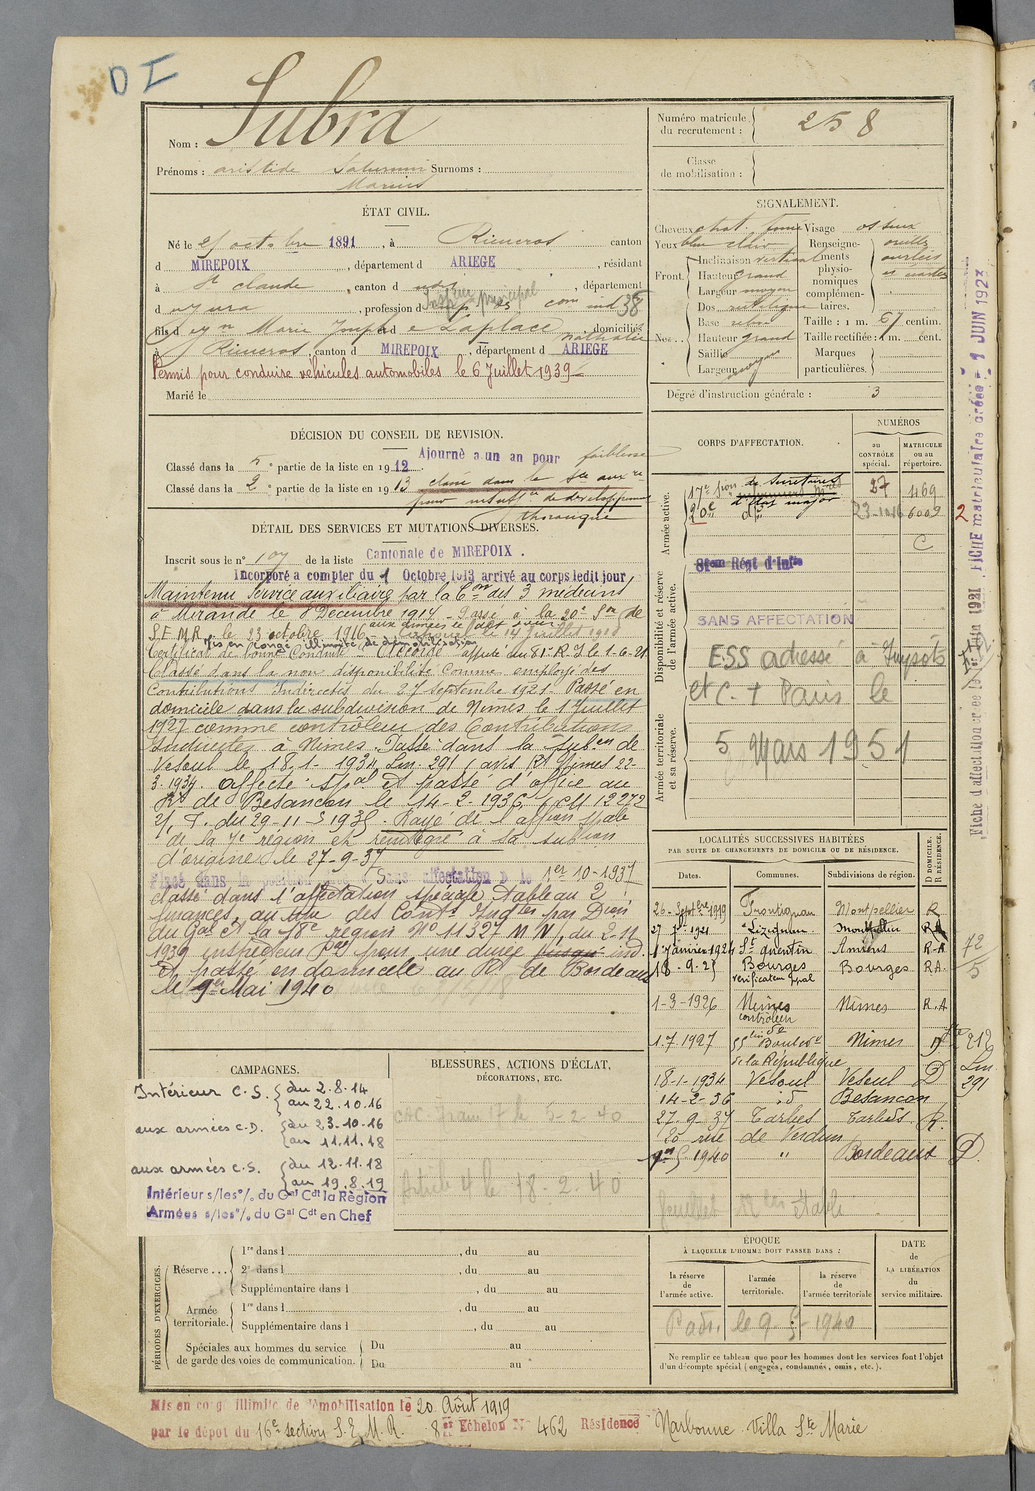 D I
Nom : Subra
Prénoms : aristide Saturnin Surnoms :
Marius
Numéro matricule du recrutement : 258
Classe de mobilisation :
ÉTAT CIVIL.
Né le 25 octobre 1891, à Rieucros canton
d MIREPOIX, département d ARIEGE, résidant
à St claude, canton d dudit, département
d u jura, profession d
fils d e Marie Joseph et d e Laplace Nathalie, domiciliés
à Rieucros, canton d MIREPOIX, département d ARIEGE
Permis pour conduire véhicules automobiles le 6 Juillet 1939
Marié le
SIGNALEMENT.
Cheveux chat. foncé Visage osseux
Yeux bleu clair Renseignements physionomiques complémentaires.
Front. Inclinaison vertical
Hauteur grand
Largeur moyen
Nez. Dos rectiligne
Base
Hauteur grand
Saillie
Largeur moy
oreilles
ourlées
et écartées
Taille : 1 m. 67 centim.
Taille rectifiée : 1 m. cent.
Marques particulières.
Degré d'instruction générale : 3
DÉCISION DU CONSEIL DE REVISION.
Classé dans la 5e partie de la liste en 1912. Ajourné a un an pour faiblesse
Classé dans la 2e partie de la liste en 1913 classé dans le Sce auxre
pour insuffce de développement
thoracique
DÉTAIL DES SERVICES ET MUTATIONS DIVERSES.
Inscrit sous le n° 107 de la liste Cantonale de MIREPOIX.
Incorporé a compter du 1 Octobre 1913 arrivé au corps ledit jour
Maintenu Service auxiliaire par la Con des 3 médecins
à Mirande le 8 Décembre 1914 - Passé à la 20e Son de
S.E.M.R. le 23 octobre 1916
Mis en congé illimité de démobilisation
Certificat de bonne Conduite "Accordé" affecté du 81e R.I. le 1-6-21
Classé dans la non disponibilité Comme employé des
Contributions Indirectes du 27 Septembre 1921. Passé en
domicile dans la subdivision de Nimes le 1 Juillet
1927 comme contrôleur des Contributions
Indirectes à Nimes. Passé dans la Subon de
Vesoul le 18-1-1934, Lm. 291 (avis Rt Nimes 22-
3-1934. Affecté Spal et passé d'office au
Rt de Besancon le 14-2-1936 12272
du 29-11-1935. Rayé de l'affon spale
de la 7e région et réintégré à la subon
d'origine le 27-9-37
Placé dans la position Sans affectation le 1er 10-1937
Classé dans l'affectation spéciale Tableau 2
finances, au titre des Conts Indtes par Dion
du Gal Ct la 18e région No 11327 MN/, du 2-11
1939 inspecteur Pal pour une durée ind.
Et passé en domicile au Rt de Bordeaux
le 9 Mai 1940
CORPS D'AFFECTATION.
NUMÉROS
au CONTRÔLE spécial.
MATRICULE ou au répertoire.
Armée active.
17e Son de Secrétaires
d'Etat major 27 469
20e do 23-10-16 6009
C
2
Disponibilité et réserve de l'armée active.
81eme Régt d'Infie
SANS AFFECTATION
Armée territoriale et sa réserve.
ESS adressé à
et C. + Paris le
5 Mars 1951
LOCALITÉS SUCCESSIVES HABITÉES
PAR SUITE DE CHANGEMENTS DE DOMICILE OU DE RÉSIDENCE.
Dates. Communes. Subdivisions de région. D DOMICILE. R RÉSIDENCE.
26-Septbre 1919 Frontignan Montpellier R
27 7 1921 Lézignan Montpellier R
1 Janvier 1924 St Quentin Amiens R.A
18-9-25 Bourges Bourges R.A.
vérificateur ppal
1-3-1926 Nîmes Nîmes R.A
contrôleur
1.7.1927 55 bis Boulevd Nimes D
de la République
18-1-1934 Vesoul Vesoul D
14-2-36 do Besancon
27.9.37 Tarbes Tarbes R.
20 rue de Verdun
9 5 1940 " Bordeaux D.
72
5
212
Lm
291
CAMPAGNES.
Intérieur C.S. du 2.8.14
au 22.10.16
aux armées C.D. du 23-10-16
au 11.11.18
aux armées C.S. du 12-11.18
au 19.8.19
Intérieur s/les °/. du Gal Cdt la Région
Armées s/les °/. du Gal Cdt en Chef
BLESSURES, ACTIONS D'ÉCLAT,
DÉCORATIONS, ETC.
le 5-2-40
Article 4 le 18-2-40
PÉRIODES D'EXERCICES.
Réserve... 1re dans l , du au
2e dans l , du au
Supplémentaire dans l , du au
Armée territoriale. 1re dans l , du au
Supplémentaire dans l , du au
Spéciales aux hommes du service de garde des voies de communication. Du au
Du au
ÉPOQUE
À LAQUELLE L'HOMME DOIT PASSER DANS :
la réserve de l'armée active.
l'armée territoriale.
la réserve de l'armée territoriale
DATE de LA LIBÉRATION du service militaire.
le 9-5-1940
Ne remplir ce tableau que pour les hommes dont les services font l'objet
d'un décompte spécial (engagés, condamnés, omis, etc.).
Mis en congé illimité de démobilisation le 20 Août 1919
par le dépot du 16e section S.E.M.R. 8e Echelon No 462 Résidence Narbonne Villa Ste Marie
FICHE matriculaire créée - 1 JUIN 1927